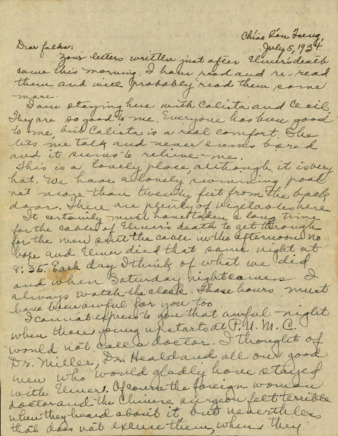 Chiao Tou Tseng,
July 5, 1934
Dear folks:
Your letters written just after Elmer's death
came this morning. I have read and re-read
them and will probably read them some
more.
I am staying here with Calista and Cecil.
They are so good to me. Everyone has been good
to me, but Calista is a real comfort. She
lets me talk and never seems bored
and it seems to relieve me.
This is a lovely place, although it is very
hot. We have a lovely swimming pool
not more than twenty feet from the back
door. There are plenty of vegetables here.
It certainly must have taken a long time
for the cable of Elmer's death to get through
for the men sent the cable in the afternoon no
hope and Elmer died that same night at
8:35. Each day I think of what we did
and when Saturday night comes I
always watch the clock. Those hours must
have been awful for you too.
I cannot express to you that awful night
when those young upstarts at P.U.M.C.
would not call a doctor. I thought of
Dr. Miller, Dr. Heald and all our good
men who would gladly have stayed
with Elmer. Of course the foreign woman
doctor and the Chinese surgeon felt terrible
when they heard about it, but nevertheless
that does not excuse them, when they